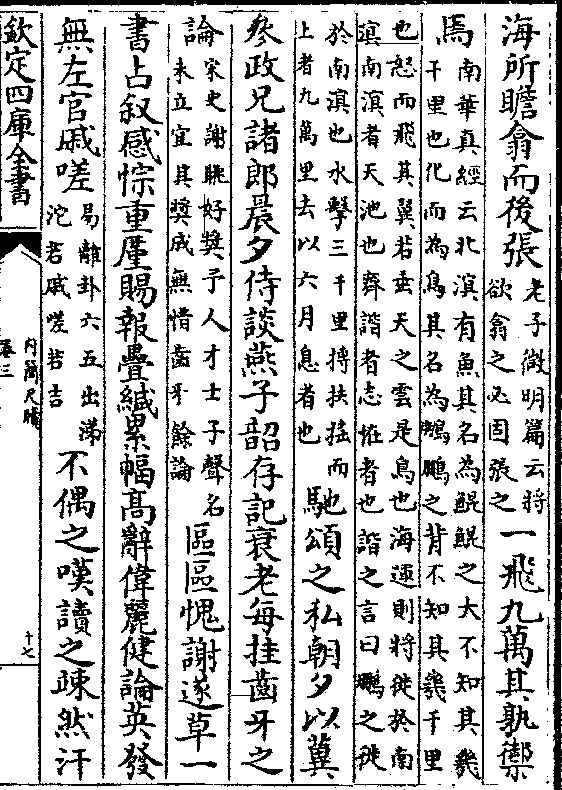 海所瞻翕而後張
老子微明篇云將
欲翕之必固張之
一飛九萬其孰禦
焉
南華真經云北溟有魚其名為鯤鯤之大不知其幾
千里也化而為鳥其名為鵬鵬之背不知其幾千里
也怒而飛其翼若垂天之雲是鳥也海運則將徙於南
溟南溟者天池也齊諧者志怪者也諧之言曰鵬之徙
於南溟也水擊三千里摶扶揺而
上者九萬里去以六月息者也
馳頌之私朝夕以冀
叅政兄諸郎晨夕侍談燕子韶存記衰老每挂齒牙之
論
宋史謝眺好奬予人才士子聲名
未立宜其奬成無惜齒牙餘論
區區愧謝遂草一
書占叙感悰重厪賜報疊緘累幅髙辭偉麗健論英發
無左官戚嗟
易離卦六五出涕
沱若戚嗟若吉
不偶之嘆讀之竦然汗
欽定四庫全書
内簡尺牘
卷三
十七